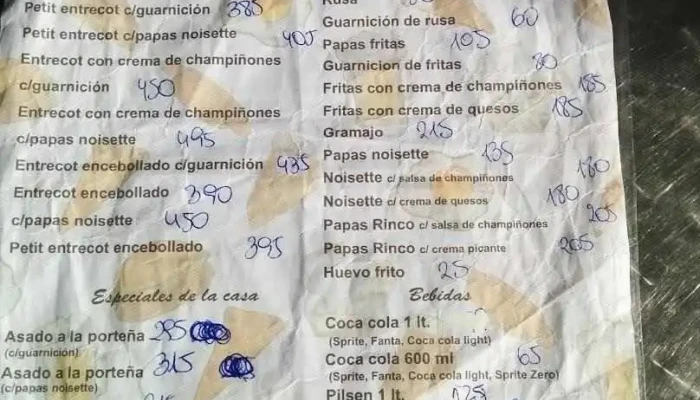 Petit entrecot c/guarnición 385
Petit entrecot c/papas noisette 405
Entrecot con crema de champiñones
c/guarnición 450
Entrecot con crema de champiñones
c/papas noisette 495
Entrecot encebollado c/guarnición 435
Entrecot encebollado 390
c/papas noisette 450
Petit entrecot encebollado 395
Especiales de la casa
Asado a la porteña 295
(c/guarnición)
Asado a la porteña 315
(c/papas noisette)
Rusa
Guarnición de rusa 60
Papas fritas 105
Guarnicion de fritas 80
Fritas con crema de champiñones 185
Fritas con crema de quesos 185
Gramajo 215
Papas noisette 135
Noisette c/ salsa de champiñones 180
Noisette c/ crema de quesos 180
Papas Rinco c/ salsa de champiñones 205
Papas Rinco c/ crema picante 205
Huevo frito 25
Bebidas
Coca cola 1 lt.
(Sprite, Fanta, Coca cola light)
Coca cola 600 ml 65
(Sprite, Fanta, Coca cola light, Sprite Zero)
Pilsen 1 lt.